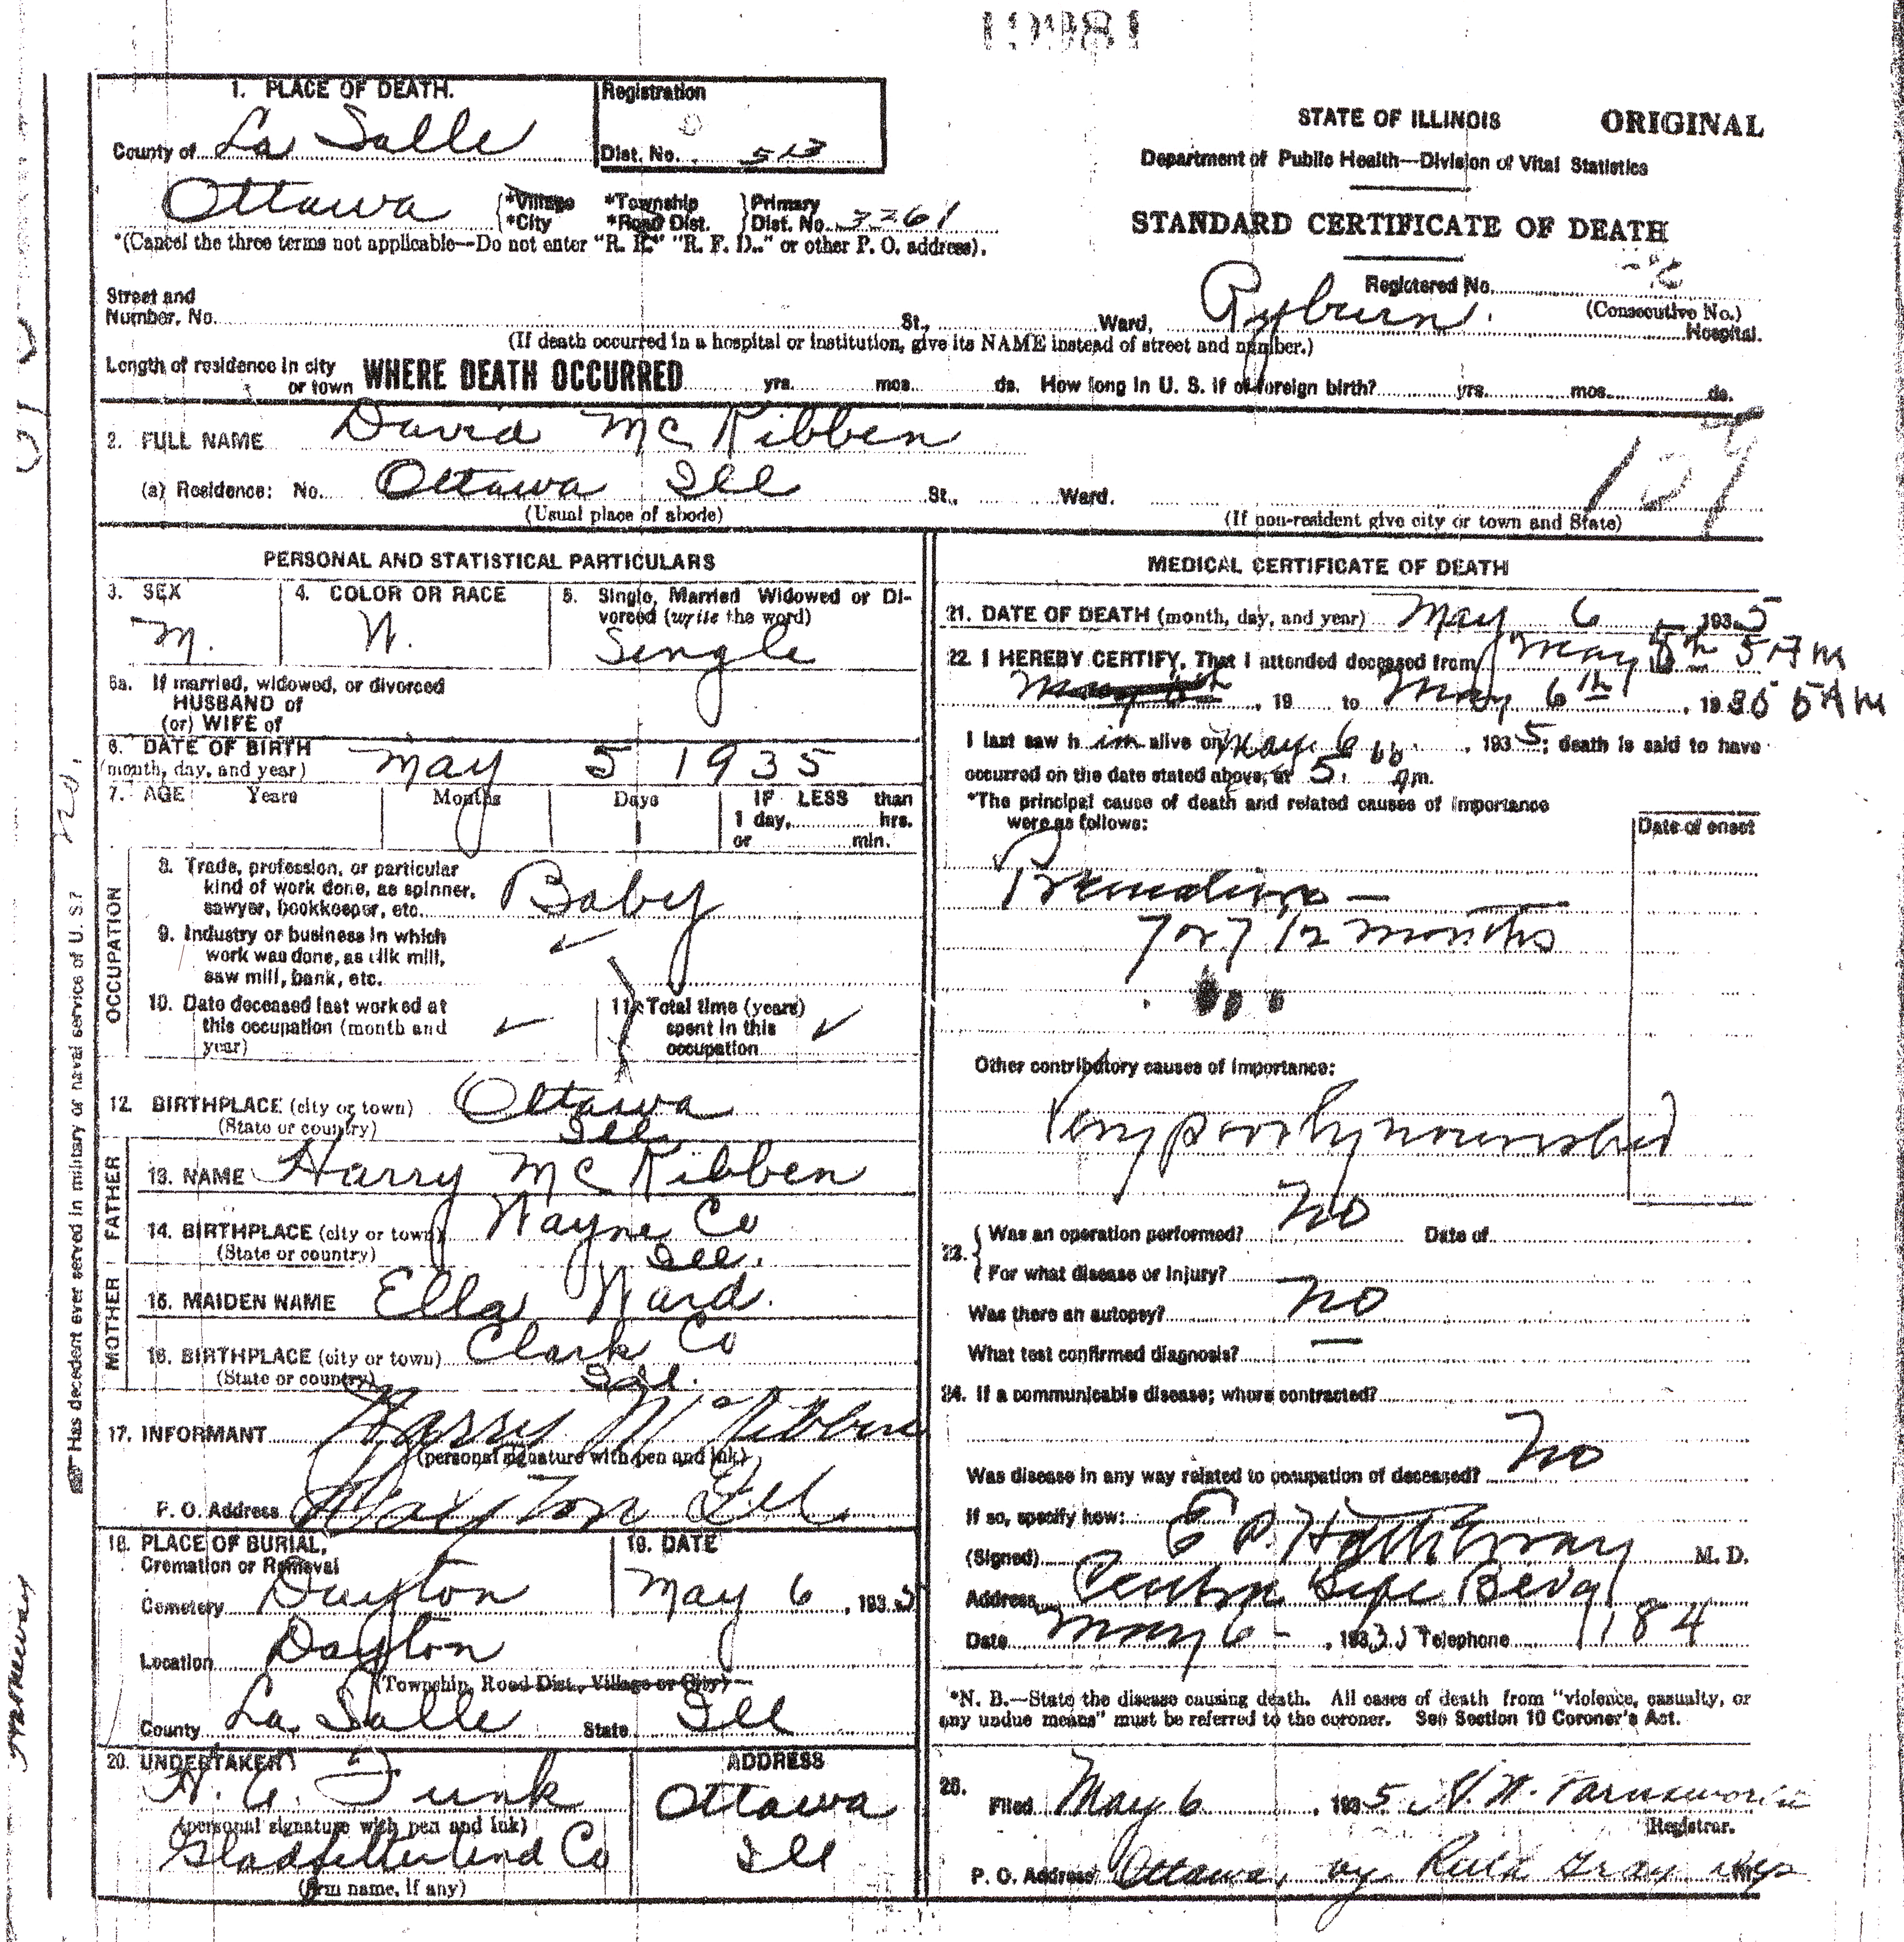 19981
1. PLACE OF DEATH.
County of La Salle
Registration
Dist. No. 513
Ottawa
*Village *Township Primary
*City *Road Dist. Dist. No. 3261
*(Cancel the three terms not applicable—Do not enter "R. R." "R. F. D.." or other P. O. address).
STATE OF ILLINOIS ORIGINAL
Department of Public Health—Division of Vital Statistics
STANDARD CERTIFICATE OF DEATH
Registered No.
(Consecutive No.)
Street and
Number, No. St., Ward, Ryburn. Hospital.
(If death occurred in a hospital or institution, give its NAME instead of street and number.)
Length of residence in city
or town WHERE DEATH OCCURRED yrs. mos. ds. How long in U. S. if of foreign birth? yrs. mos. ds.
2. FULL NAME David McKibben
(a) Residence: No. Ottawa Ill St., Ward.
(Usual place of abode) (If non-resident give city or town and State)
PERSONAL AND STATISTICAL PARTICULARS
3. SEX
M.
4. COLOR OR RACE
W.
5. Single, Married Widowed or Di-
vorced (write the word)
Single
5a. If married, widowed, or divorced
HUSBAND of
(or) WIFE of
6. DATE OF BIRTH
(month, day, and year) May 5 1935
7. AGE Years Months Days IF LESS than
1 1 day, hrs.
or min.
OCCUPATION
8. Trade, profession, or particular
kind of work done, as spinner,
sawyer, bookkeeper, etc. Baby
9. Industry or business in which
work was done, as silk mill,
saw mill, bank, etc.
10. Date deceased last worked at
this occupation (month and
year)
11. Total time (years)
spent in this
occupation
12. BIRTHPLACE (city or town) Ottawa
(State or country) Ill
FATHER
13. NAME Harry McKibben
14. BIRTHPLACE (city or town) Wayne Co
(State or country) Ill.
MOTHER
15. MAIDEN NAME Ella Ward.
16. BIRTHPLACE (city or town) Clark Co
(State or country)
17. INFORMANT Harry McKibben
(personal signature with pen and ink)
P. O. Address Dayton Ill.
18. PLACE OF BURIAL,
Cremation or Removal
Cemetery Dayton
19. DATE
May 6, 1935
Location Dayton
(Township, Road Dist., Village or City)
County La Salle State Ill
20. UNDERTAKER
Funk
(personal signature with pen and ink)
(firm name, if any)
ADDRESS
Ottawa
Ill
Has decedent ever served in military or naval service of U. S.? no.
MEDICAL CERTIFICATE OF DEATH
21. DATE OF DEATH (month, day, and year) May 6 1935
22. I HEREBY CERTIFY, That I attended deceased from May 5th 5 AM
, 19 to May 6th, 1935 5 AM
I last saw h im alive on May 6, 1935; death is said to have
occurred on the date stated above, at 5. am.
*The principal cause of death and related causes of importance
were as follows:
Date of onset
Premature —
7 or 7 1/2 months
Other contributory causes of importance:
Very poorly nourished
23. Was an operation performed? No Date of
For what disease or injury?
Was there an autopsy? No
What test confirmed diagnosis? —
24. If a communicable disease; where contracted?
Was disease in any way related to occupation of deceased? No
If so, specify how:
(Signed) E P. Hathaway M. D.
Address Central Life Bldg
Date May 6 - , 1935 Telephone 1184
*N. B.—State the disease causing death. All cases of death from "violence, casualty, or
any undue means" must be referred to the coroner. See Section 10 Coroner's Act.
25.
Filed May 6, 1935 Farnsworth
Registrar.
P. O. Address Ottawa, by Ruth Gray